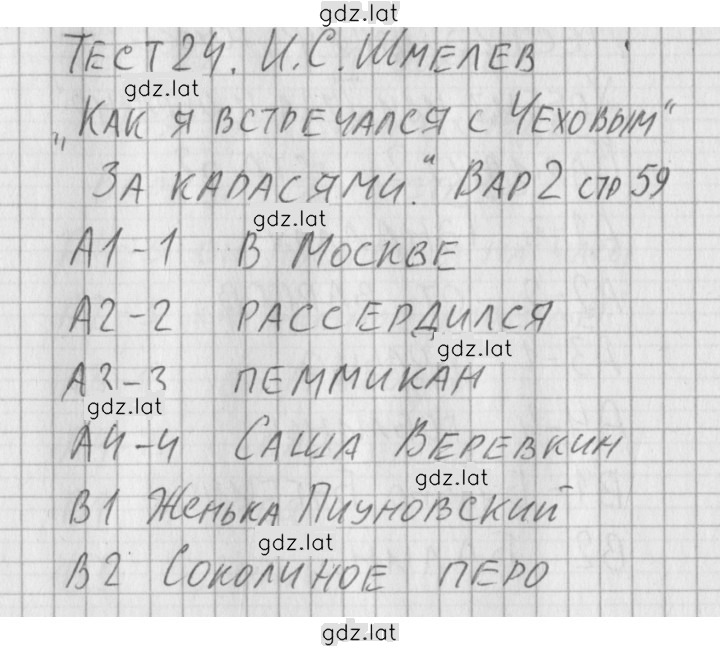 gdz.lat
Тест 24. И.С. Шмелев
gdz.lat
„Как я встречался с Чеховым"
За карасями." Вар 2 стр 59
gdz.lat
А1-1 В Москве
А2-2 рассердился
gdz.lat
А3-3 пеммикан
gdz.lat
А4-4 Саша Веревкин
gdz.lat
В1 Женька Пиуновский
gdz.lat
В2 Соколиное перо
gdz.lat